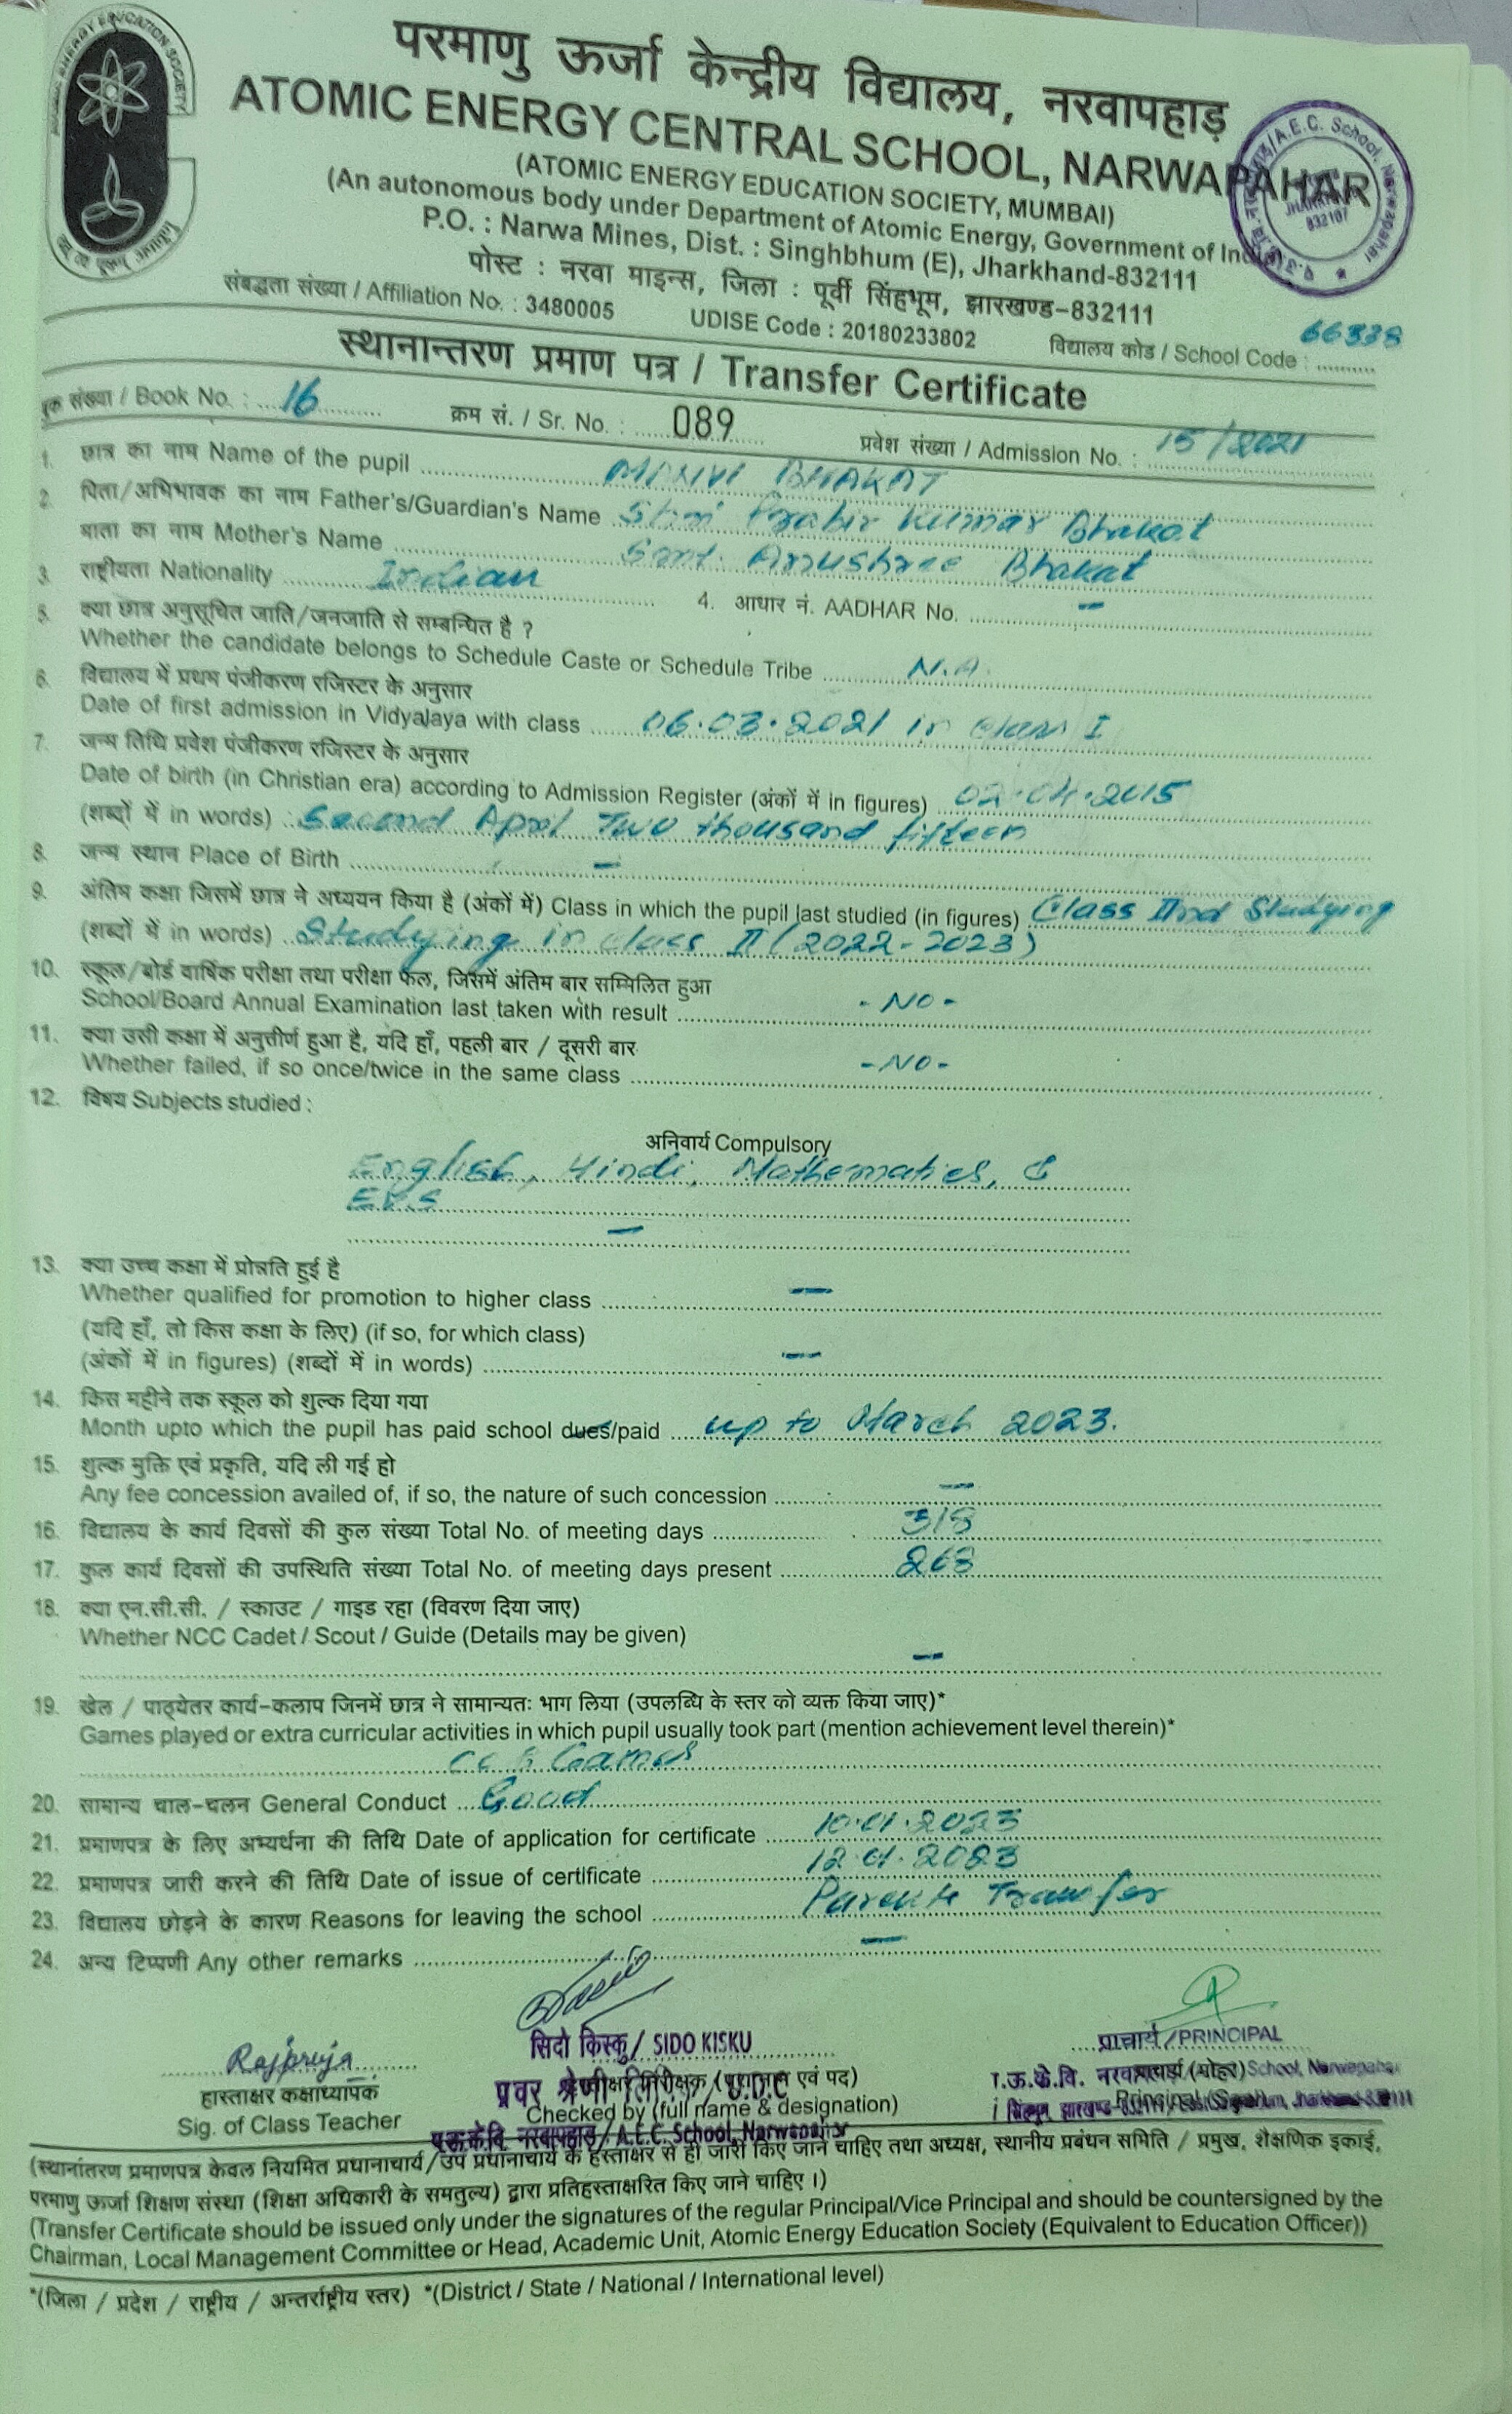 परमाणु ऊर्जा केन्द्रीय विद्यालय, नरवापहाड़
ATOMIC ENERGY CENTRAL SCHOOL, NARWAPAHAR
(ATOMIC ENERGY EDUCATION SOCIETY, MUMBAI)
(An autonomous body under Department of Atomic Energy, Government of India)
P.O. : Narwa Mines, Dist. : Singhbhum (E), Jharkhand-832111
पोस्ट : नरवा माइन्स, जिला : पूर्वी सिंहभूम, झारखण्ड-832111
संबद्धता संख्या / Affiliation No. : 3480005 UDISE Code : 20180233802 विद्यालय कोड / School Code : 66338
स्थानान्तरण प्रमाण पत्र / Transfer Certificate
बुक संख्या / Book No. : 16 क्रम सं. / Sr. No. : 089 प्रवेश संख्या / Admission No. : 15/2021
1. छात्र का नाम Name of the pupil MANVI BHAKAT
2. पिता/अभिभावक का नाम Father's/Guardian's Name Shri Prabir Kumar Bhakat
माता का नाम Mother's Name Smt. Anushree Bhakat
3. राष्ट्रीयता Nationality Indian 4. आधार नं. AADHAR No. –
5. क्या छात्र अनुसूचित जाति/जनजाति से सम्बन्धित है ?
Whether the candidate belongs to Schedule Caste or Schedule Tribe N.A.
6. विद्यालय में प्रथम पंजीकरण रजिस्टर के अनुसार
Date of first admission in Vidyalaya with class 06.03.2021 in class I
7. जन्म तिथि प्रवेश पंजीकरण रजिस्टर के अनुसार
Date of birth (in Christian era) according to Admission Register (अंकों में in figures) 02.04.2015
(शब्दों में in words) Second April Two thousand fifteen
8. जन्म स्थान Place of Birth –
9. अंतिम कक्षा जिसमें छात्र ने अध्ययन किया है (अंकों में) Class in which the pupil last studied (in figures) Class IInd Studying
(शब्दों में in words) Studying in class II (2022-2023)
10. स्कूल/बोर्ड वार्षिक परीक्षा तथा परीक्षा फल, जिसमें अंतिम बार सम्मिलित हुआ
School/Board Annual Examination last taken with result - NO -
11. क्या उसी कक्षा में अनुत्तीर्ण हुआ है, यदि हाँ, पहली बार / दूसरी बार
Whether failed, if so once/twice in the same class - NO -
12. विषय Subjects studied :
अनिवार्य Compulsory
English, Hindi, Mathematics, &
EVS
–
13. क्या उच्च कक्षा में प्रोन्नति हुई है
Whether qualified for promotion to higher class –
(यदि हाँ, तो किस कक्षा के लिए) (if so, for which class)
(अंकों में in figures) (शब्दों में in words) –
14. किस महीने तक स्कूल को शुल्क दिया गया
Month upto which the pupil has paid school dues/paid up to March 2023.
15. शुल्क मुक्ति एवं प्रकृति, यदि ली गई हो
Any fee concession availed of, if so, the nature of such concession –
16. विद्यालय के कार्य दिवसों की कुल संख्या Total No. of meeting days 318
17. कुल कार्य दिवसों की उपस्थिति संख्या Total No. of meeting days present 268
18. क्या एन.सी.सी. / स्काउट / गाइड रहा (विवरण दिया जाए)
Whether NCC Cadet / Scout / Guide (Details may be given)
–
19. खेल / पाठ्येतर कार्य-कलाप जिनमें छात्र ने सामान्यतः भाग लिया (उपलब्धि के स्तर को व्यक्त किया जाए)*
Games played or extra curricular activities in which pupil usually took part (mention achievement level therein)*
Games
20. सामान्य चाल-चलन General Conduct Good
21. प्रमाणपत्र के लिए अभ्यर्थना की तिथि Date of application for certificate 10.01.2023
22. प्रमाणपत्र जारी करने की तिथि Date of issue of certificate 12.01.2023
23. विद्यालय छोड़ने के कारण Reasons for leaving the school Parents Transfer
24. अन्य टिप्पणी Any other remarks –
सिदो किस्कु/ SIDO KISKU
प्राचार्य/PRINCIPAL
हास्ताक्षर कक्षाध्यापक
Sig. of Class Teacher
Checked by (full name & designation)
Principal (Seal)
ए.ऊ.के.वि. नरवापहाड़/A.E.C. School, Narwapahar
(स्थानांतरण प्रमाणपत्र केवल नियमित प्रधानाचार्य/उप प्रधानाचार्य के हस्ताक्षर से ही जारी किए जाने चाहिए तथा अध्यक्ष, स्थानीय प्रबंधन समिति / प्रमुख, शैक्षणिक इकाई,
परमाणु ऊर्जा शिक्षण संस्था (शिक्षा अधिकारी के समतुल्य) द्वारा प्रतिहस्ताक्षरित किए जाने चाहिए ।)
(Transfer Certificate should be issued only under the signatures of the regular Principal/Vice Principal and should be countersigned by the
Chairman, Local Management Committee or Head, Academic Unit, Atomic Energy Education Society (Equivalent to Education Officer))
*(जिला / प्रदेश / राष्ट्रीय / अन्तर्राष्ट्रीय स्तर) *(District / State / National / International level)